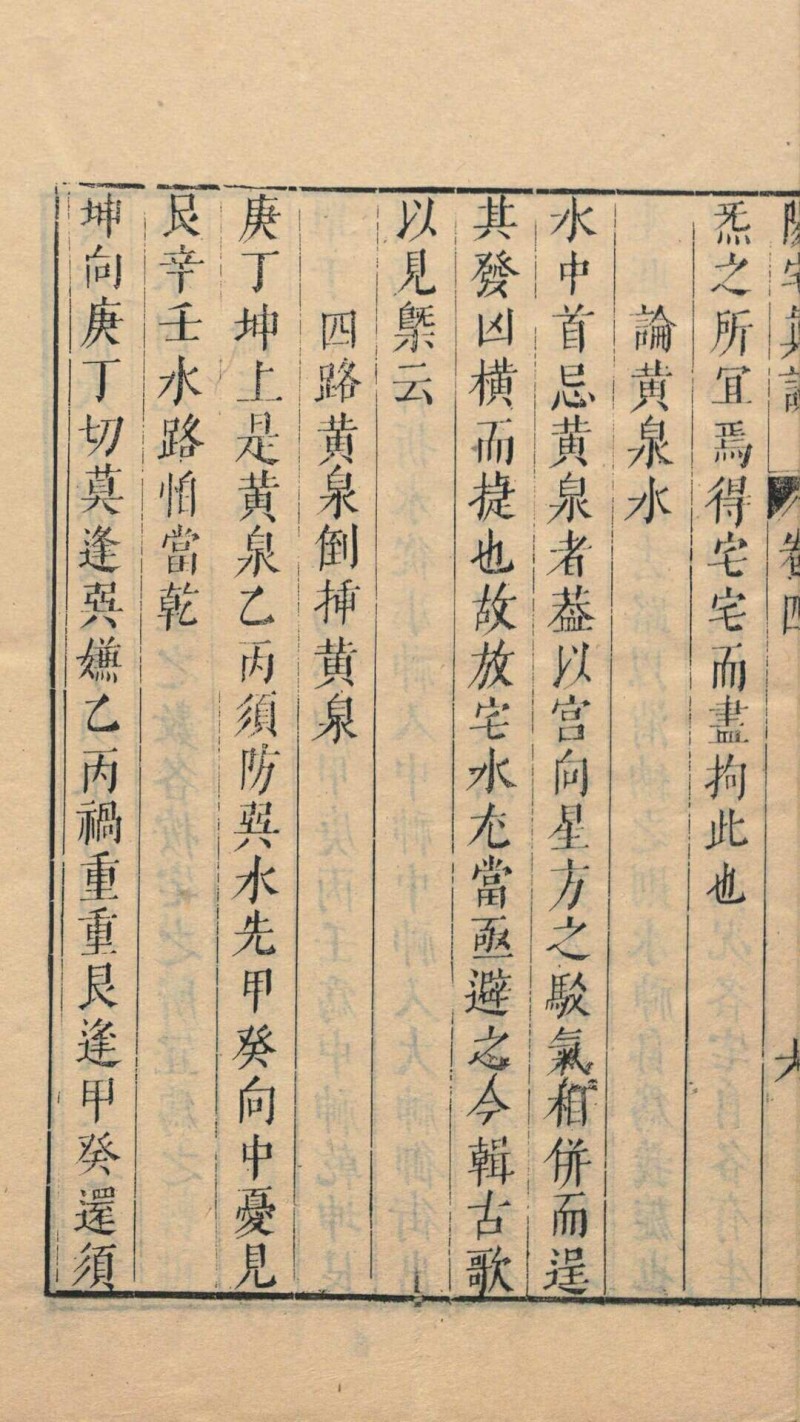 陽宅真訣 卷四 九
炁之所宜焉得宅宅而盡拘此也
論黄泉水
水中首忌黄泉者葢以宫向星方之駁氣相併而逞
其發凶横而捷也故放宅水尤當亟避之今輯古歌
以見槩云
四路黄泉倒揷黄泉
庚丁坤上是黄泉乙丙須防巽水先甲癸向中憂見
艮辛壬水路怕當乾
坤向庚丁切莫逢巽嫌乙丙禍重重艮逢甲癸還須